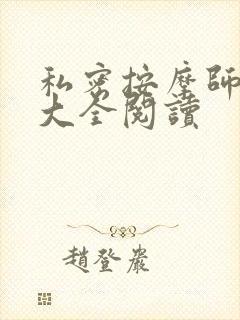 私密按摩師
大全閱讀
趙登巖